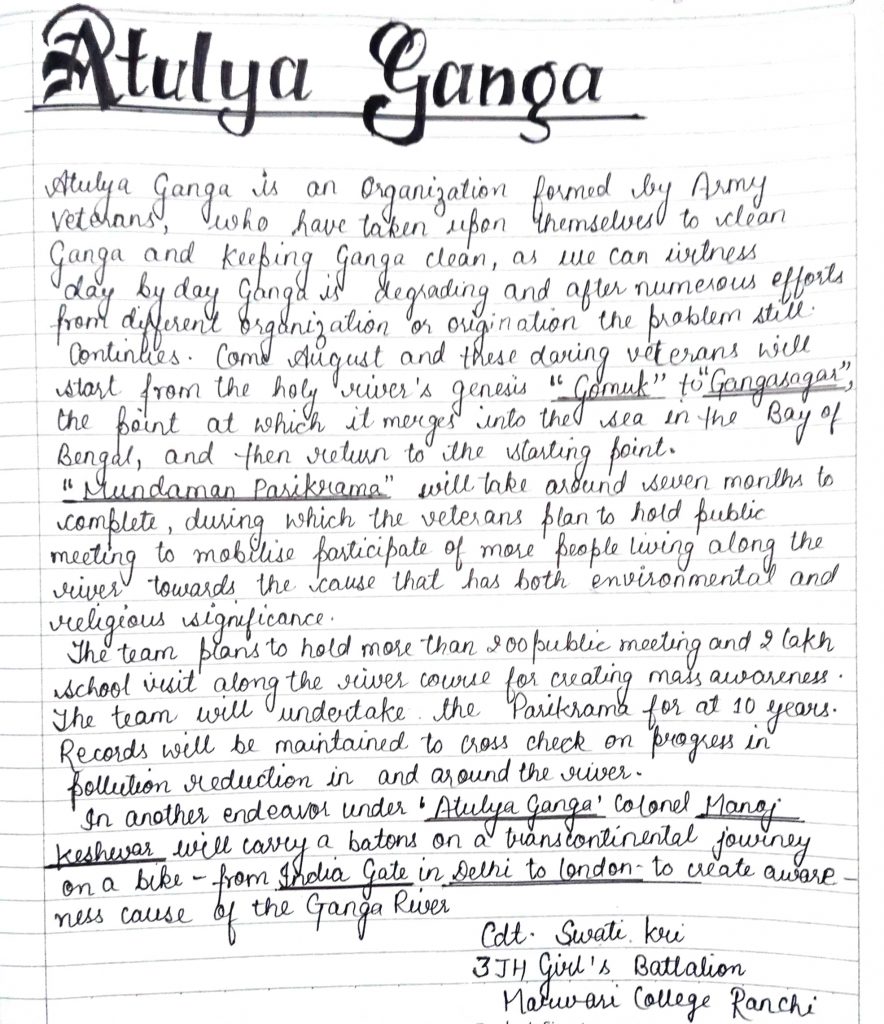 Atulya Ganga
Atulya Ganga is an Organization formed by Army
Veterans, who have taken upon themselves to clean
Ganga and keeping Ganga clean, as we can wirtness
day by day Ganga is degrading and after numerous efforts
from different organization or origination the problem still
Continues. Come August and these daring veterans will
start from the holy river's genesis "Gomuk" to "Gangasagar",
the point at which it merges into the sea in the Bay of
Bengal, and then return to the starting point.
"Mundaman Parikrama" will take around seven months to
complete, during which the veterans plan to hold public
meeting to mobilise participate of more people living along the
river towards the cause that has both environmental and
religious significance.
The team plans to hold more than 200 public meeting and 2 lakh
school visit along the river course for creating mass awareness.
The team will undertake the Parikrama for at 10 years.
Records will be maintained to cross check on progress in
pollution reduction in and around the river.
In another endeavor under 'Atulya Ganga' Colonel Manoj
Keshwar will carry a batons on a transcontinental journey
on a bike - from India Gate in Delhi to london - to create aware-
ness cause of the Ganga River
Cdt. Swati kri
3 JH Girl's Battalion
Marwari College Ranchi